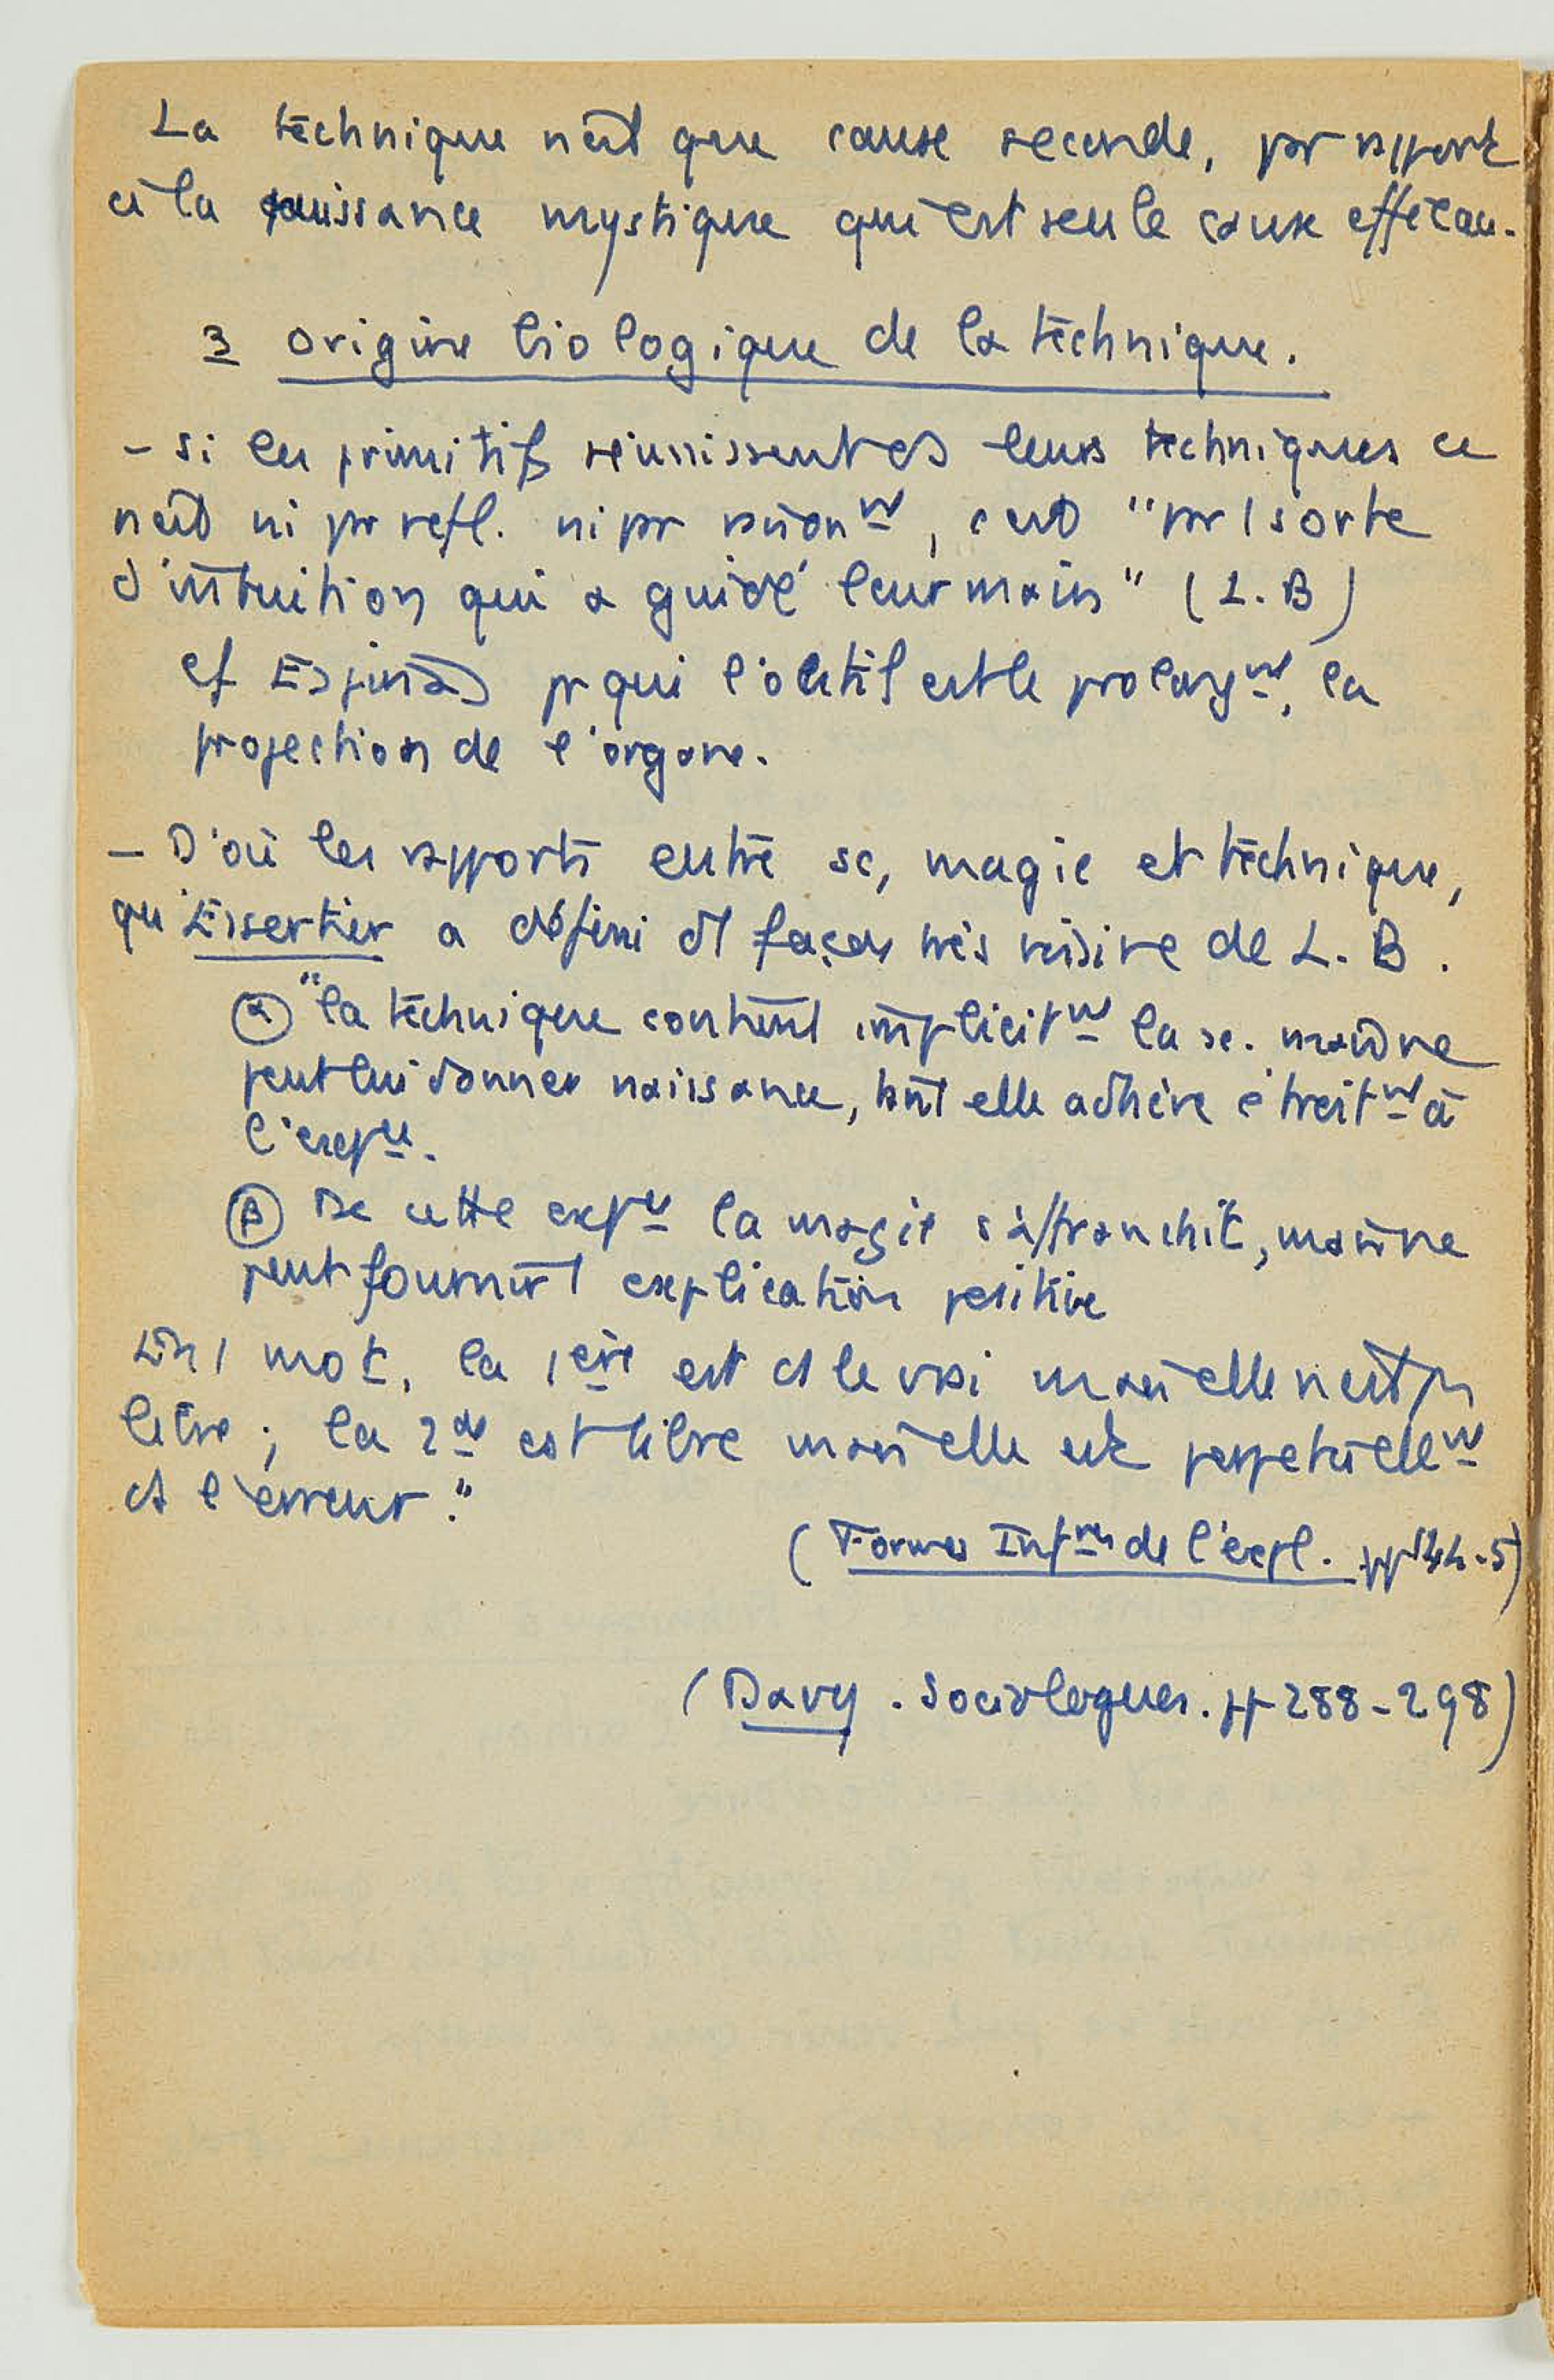 La technique n'est que cause seconde, par rapport
à la puissance mystique qui est seule cause efficace.
3 origine biologique de la technique.
- si les primitifs réussissent ds leurs techniques ce
n'est ni par refl. ni par raisonnt, c'est "par 1 sorte
d'intuition qui a guidé leur main" (L. B)
cf Espinas pr qui l'outil est le prolongnt, la
projection de l'organe.
- D'où les rapports entre sc, magie et technique,
qu'Essertier a défini d'1 façon très voisine de L. B.
α "la technique contient implicitnt la sc. mais ne
peut lui donner naissance, tant elle adhère étroitnt à
l'expce.
β De cette expce la magie s'affranchit, mais ne
peut fournir 1 explication positive
En 1 mot, la 1ère est ds le vrai mais elle n'est pas
libre ; la 2de est libre mais elle est perpétuellent
ds l'erreur."
(Formes Infres de l'expl. pp 144-5)
(Davy. Sociologues. pp 288-298)